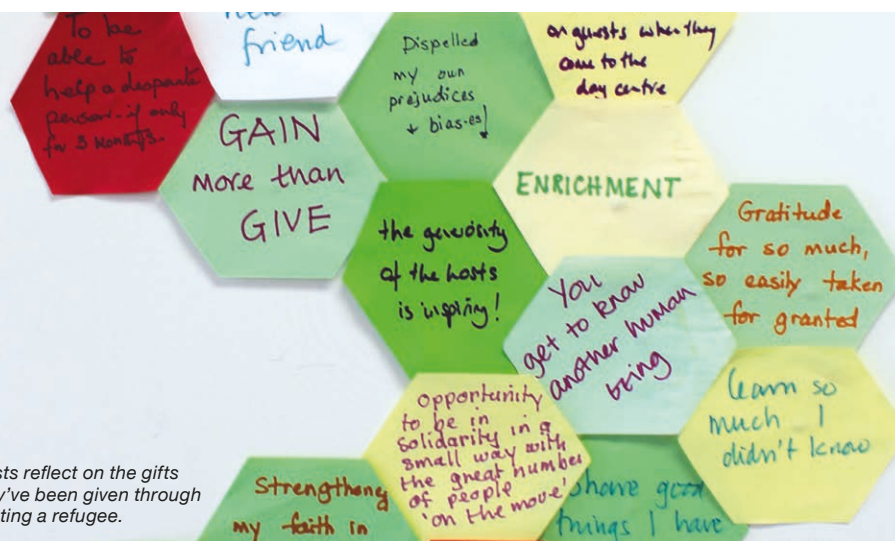 To be
able to
help a desperate
person - if only
for 3 months.
new
friend
Dispelled
my own
prejudices
+ bias-es!
on guests when they
come to the
day centre
GAIN
more than
GIVE
ENRICHMENT
the generosity
of the hosts
is inspiring!
Gratitude
for so much,
so easily taken
for granted
You
get to know
another human
being
learn so
much I
didn't know
Opportunity
to be in
solidarity in a
small way with
the great number
of people
'on the move'
Strengthens
my faith in
share good
things I have
sts reflect on the gifts
y've been given through
ting a refugee.